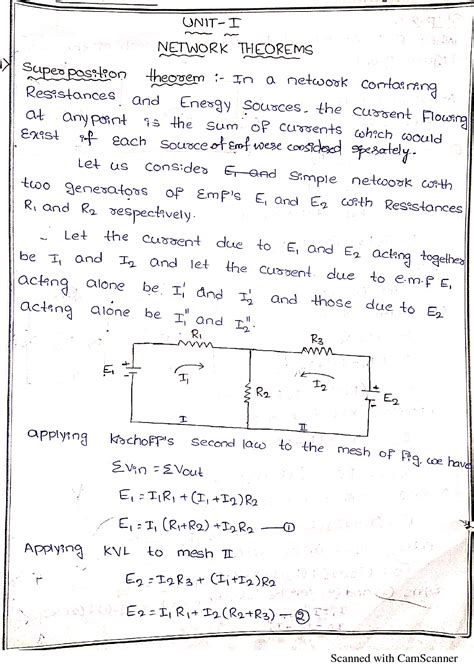 UNIT-I
NETWORK THEOREMS
Superposition theorem :- In a network containing
Resistances and Energy Sources, the current Flowing
at any point is the sum of currents which would
Exist if each source of Emf were considered seperately.
Let us consider E1 and simple network with
two generators of Emf's E1 and E2 with Resistances
R1 and R2 respectively.
Let the current due to E1 and E2 acting together
be I1 and I2 and let the current due to e.m.f E1
acting alone be I1' and I2' and those due to E2
acting alone be I1" and I2".
R1 R3
E1 I1 R2 I2 E2
I II
applying Kirchoff's second law to the mesh of fig. we have
ΣVin = ΣVout
E1 = I1R1 + (I1+I2)R2
E1 = I1 (R1+R2) + I2R2 — ①
Applying KVL to mesh II
E2 = I2R3 + (I1+I2)R2
E2 = I1 R1 + I2 (R2+R3) — ②
Scanned with CamScanner